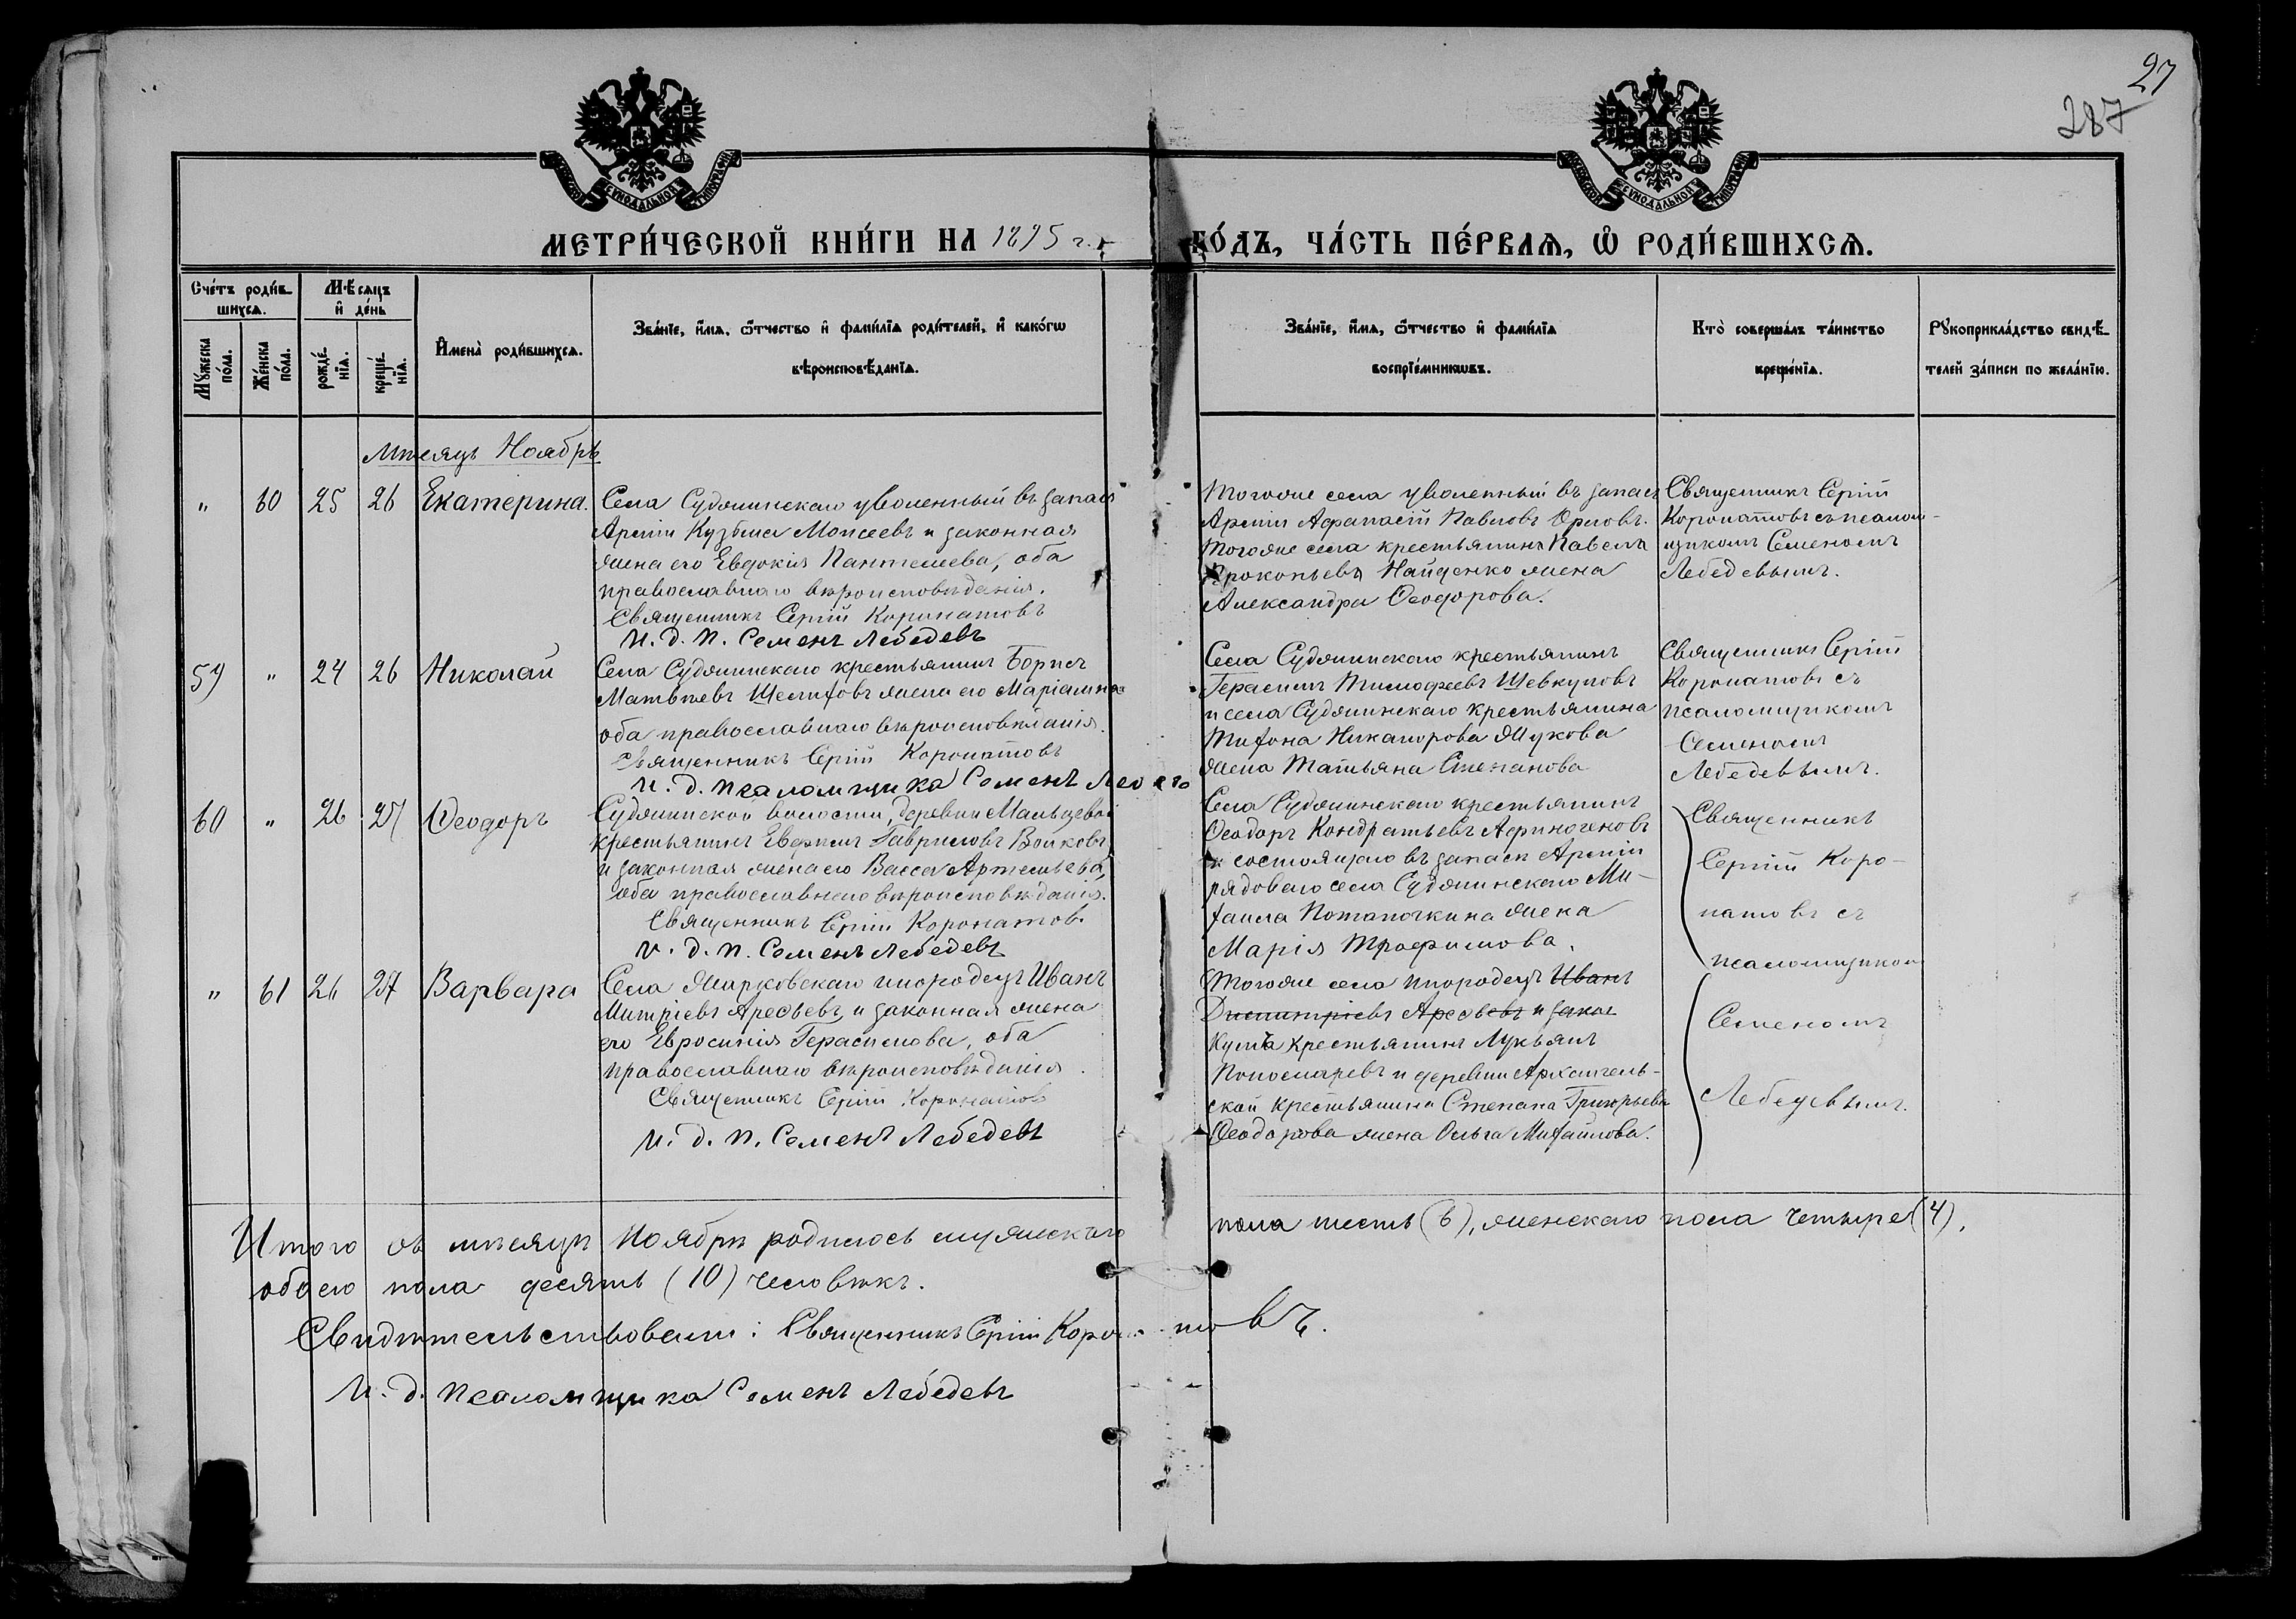 27
287
МЕТРИ́ЧЕСКОЙ КНИ́ГИ НА 1895 г. ГО́ДЪ, ЧА́СТЬ ПЕ́РВАЯ, Ѡ РОДИ́ВШИХСЯ.
Сче́тъ роди́в-
шихся.
Мѣ́сяцъ
и де́нь
Му́жеска по́ла.
Же́нска по́ла.
рожде́-
нїя.
креще́-
нїя.
Имена̀ роди́вшихся.
Зва́нїе, и́мя, ѻ҆́тчество и фами́лїя роди́телей, и како́гѡ
вѣроисповѣ́данїя.
Зва́нїе, и́мя, ѻ҆́тчество и фами́лїя
воспрїе́мникѡвъ.
Кто̀ соверша́лъ та́инство
креще́нїя.
Рꙋкоприкла́дство свидѣ́-
телей за́писи по жела́нїю.
Мѣсяцъ Ноябрь
" 60 25 26 Екатерина.
Села Судженскаго уволенный въ запасъ
Арміи Кузьма Моисеевъ и законная
жена его Евдокія Пантелеева, оба
православнаго вѣроисповѣданія.
Священникъ Сергій Коронатовъ
И. д. п. Семенъ Лебедевъ
Тогоже села уволенный въ запасъ
Арміи Афанасій Павловъ Орловъ.
Тогоже села крестьянина Павела
Прокопьева Найденко жена
Александра Ѳеодорова.
Священникъ Сергій
Коронатовъ съ псалом-
щикомъ Семеномъ
Лебедевымъ.
59 " 24 26 Николай
Села Судженскаго крестьянинъ Борисъ
Матвѣевъ жена его Маріамна
оба православнаго вѣроисповѣданія.
Священникъ Сергій Коронатовъ
И. д. псаломщика Семенъ
Села Судженскаго крестьянинъ
Герасимъ Тимофеевъ Шевкуновъ
и села Судженскаго крестьянина
Тихона Никанорова Жукова
жена Татьяна Степанова
Священникъ Сергій
Коронатовъ съ
псаломщикомъ
Семеномъ
Лебедевымъ.
60 " 26 27 Ѳеодоръ
Судженской волости, деревни Мальцевой
крестьянинъ Евфимъ Гавриловъ Волковъ
и законная жена его Васса Артемьева,
оба православнаго вѣроисповѣданія.
Священникъ Сергій Коронатовъ
И. д. п. Семенъ Лебедевъ
Села Судженскаго крестьянинъ
Ѳеодоръ Кондратьевъ Афиногеновъ
и состоящаго въ запасѣ Арміи
рядоваго села Судженскаго Ми-
хаила Потапочкина жена
Марія Трофимова.
Священникъ
Сергій Коро-
натовъ съ
псаломщиком
" 61 26 27 Варвара
Села инородецъ Иванъ
Митріевъ Арефьевъ и законная жена
его Евросинія Герасимова, оба
православнаго вѣроисповѣданія.
Священникъ Сергій Коронатовъ
И. д. п. Семенъ Лебедевъ
Тогоже села инородецъ Иванъ
Димитріевъ Арефьевъ и закон
крестьянинъ Лукьянъ
Пономаревъ и деревни Архангель-
ской крестьянина Степана Григорьева
Ѳеодорова жена Ольга Михайлова.
Семеномъ
Лебедевымъ.
Итого въ мѣсяцѣ Ноябрѣ родилось мужескаго пола шесть (6), женскаго пола четыре (4),
обоего пола десять (10) человѣкъ.
Свидѣтельствовали: Священникъ Сергій Коронатовъ.
И. д. псаломщика Семенъ Лебедевъ